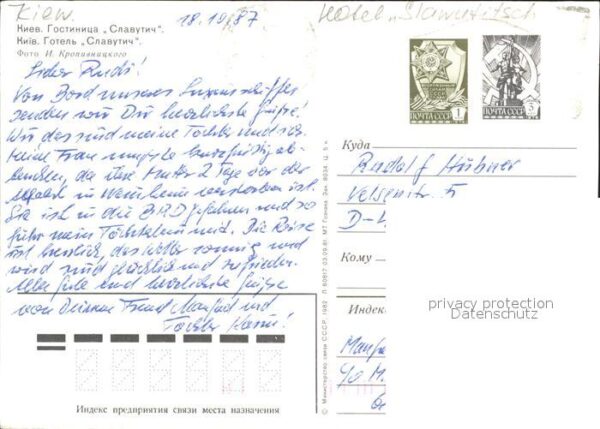 Kiew.
18.10.87
Hotel „Slawutitsch
Киев. Гостиница „Славутич".
Київ. Готель „Славутич".
Фото И. Кропивницкого
Lieber Rudi!
Von Bord unseres Luxusschiffes
senden wir Dir herzlichste Grüße!
Wir das sind meine Tochter und ich.
Meine Frau mußte kurzfristig ab-
da ihre Mutter 2 Tage vor der
in Weinheim verstorben ist.
Sie ist in die BRD gefahren und so
fuhr mein Töchterlein mit. Die Reise
ist herrlich, das Wetter sonnig und
wir sind glücklich und zufrieden.
Alles Gute und herzlichste Grüße
von Deinem Freund Manfred und
Tochter
ПОЧТА СССР 1
ПОЧТА СССР
Куда
Rudolf Hübner
5
D-
Кому
Индекс
privacy protection
Datenschutz
Manfre
c/o M.
© Министерство связи СССР. 1982
Индекс предприятия связи места назначения